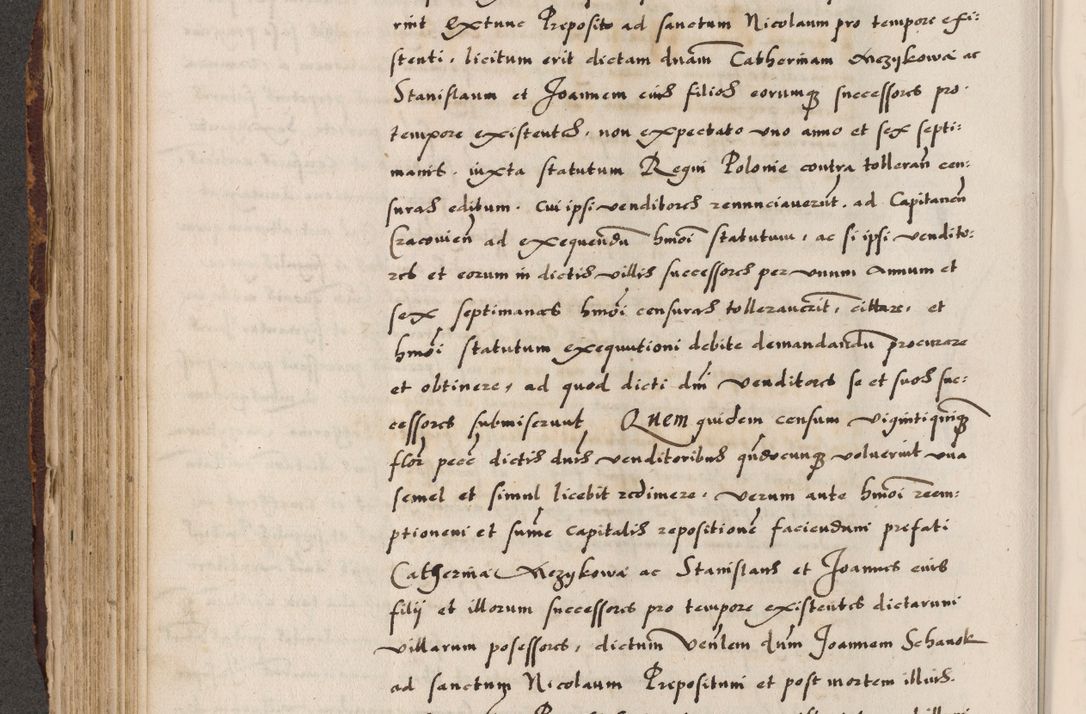 rint Extunc Preposito ad sanctum Nicolaum pro tempore exi:
stenti, licitum erit dictam dnam Catherinam Mezykowa ac
Stanislaum et Joannem eius filios eorumq successores pro
tempore existentes, non expectato uno anno et sex septi:
manis, iuxta statutum Regni Polonie contra tolleran cen:
suras editum. Cui ipsi venditores renunciaverut, ad Capitaneu
Cracovien ad exequendu hmoi statutum, ac si ipsi vendito:
res et eorum in dictis villis successores per unum Annum et
sex septimanas hmoi censuras tolleraverit, cittare, et
hmoi statutum exequutioni debite demandandu procurare
et obtinere, ad quod dicti dni venditores se et suos suc:
cessores submiserunt Quem quidem censum vigintiquinq
flor pecc dictis dnis venditoribus qndocunq voluerint una
semel et simul licebit redimere, verum ante hmoi reem:
ptionem et sume capitalis repositione faciendum prefati
Catherina Mezykowa ac Stanislaus et Joannes eius
filij et illorum successores pro tempore existentes dictarum
villarum posessores, dictum Venlem dnm Joannem Schanok
ad sanctum Nicolaum Prepositum et post mortem illius